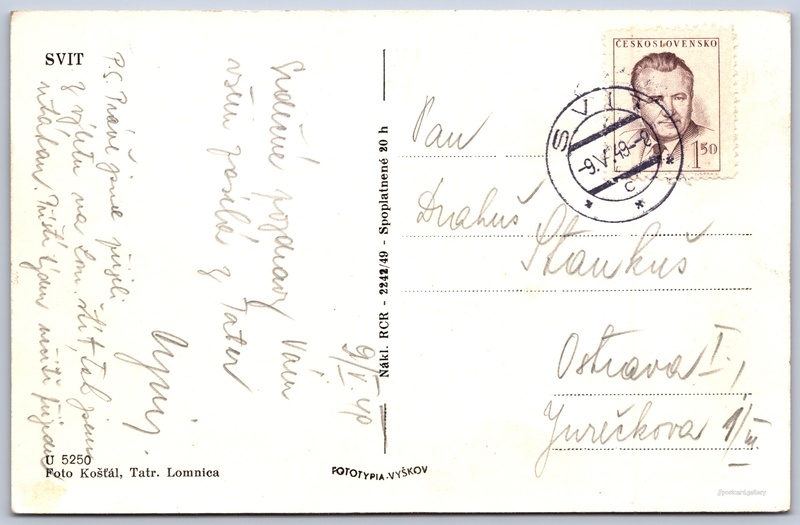 SVIT
P.S. Právě jsme přijeli
z výletu na Lom. štít, tak jsem
utahan. Příští týden
Srdečné pozdravy Vám
všem posílá z Tater
9/V. 49
U 5250
Foto Košťál, Tatr. Lomnica
Nákl. RCR - 2242/49 - Spoplatnené 20 h
FOTOTYPIA-VYŠKOV
ČESKOSLOVENSKO
1 50
SVIT
-9.V.49.-2
C
Pan
Drahuš
Stankuš
Ostrava I.,
Jurečkova 1/III.